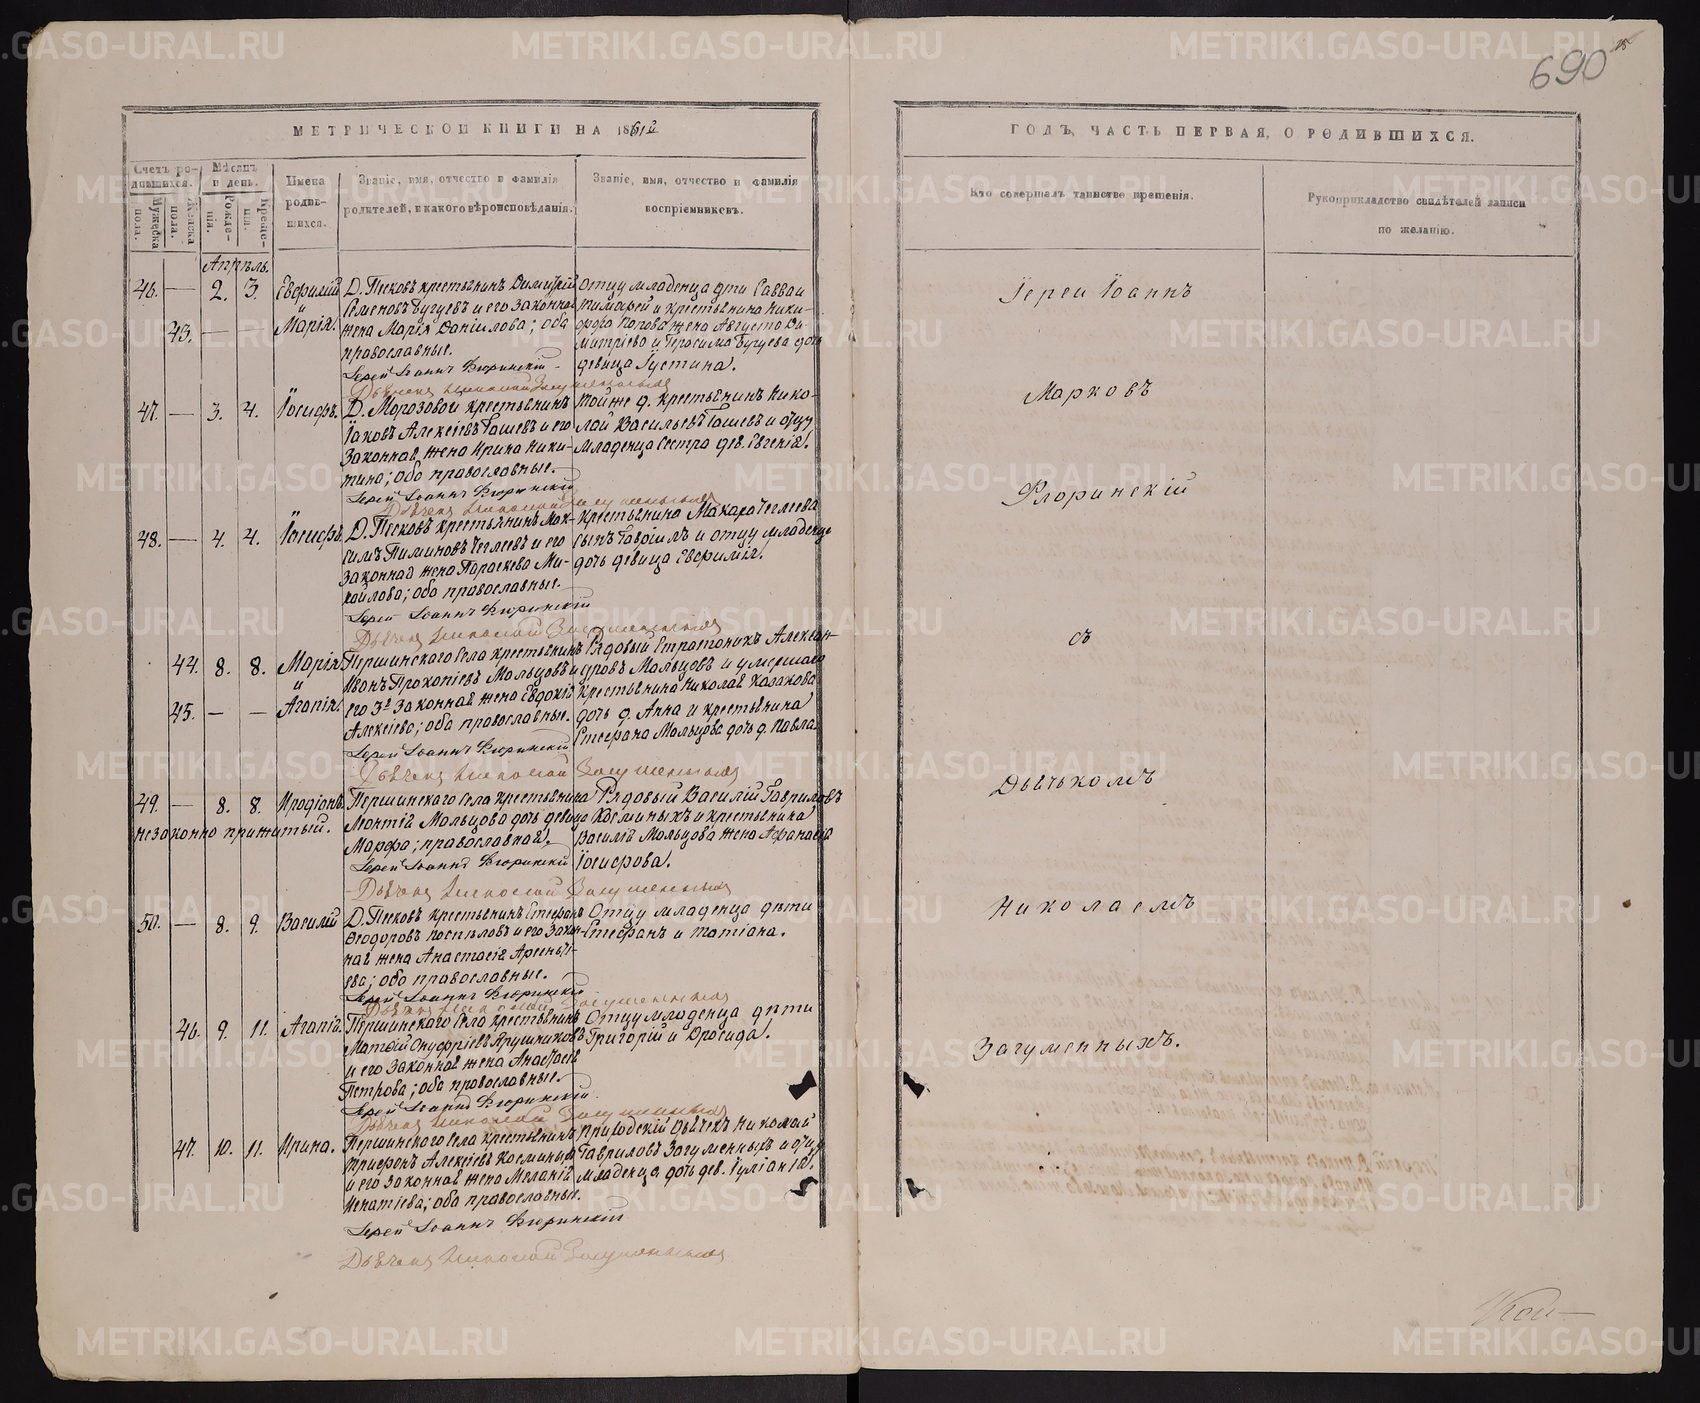 690
МЕТРИЧЕСКОЙ КНИГИ НА 1861й
ГОДЪ, ЧАСТЬ ПЕРВАЯ, О РОДИВШИХСЯ.
Счетъ родившихся.
Мужеска пола.
Женска пола.
Мѣсяцъ и день.
Рожденія.
Крещенія.
Имена родившихся.
Званіе, имя, отчество и фамилія родителей, и какого вѣроисповѣданія.
Званіе, имя, отчество и фамилія воспріемниковъ.
Кто совершалъ таинство крещенія.
Рукоприкладство свидѣтелей записи по желанію.
Апрѣль.
46. — 2. 3. Евфимій
и
43. — — Марія.
Д. Песковъ крестьянинъ Димитрій
Семеновъ Бугуевъ и его законная
жена Марія Даніилова; оба
православные.
Іерей Іоаннъ Флоринскій
Дьячекъ Николай Загуменныхъ
Отцу младенца дѣти Савва и
Тимофей и крестьянина Ники-
фора Попова жена Августа Ди-
митріева и Герасима Бугуева дочь
девица Іустина.
47. — 3. 4. Іосифъ.
Д. Морозовой крестьянинъ
Іаковъ Алексіевъ Гашевъ и его
законная жена Ирина Ники-
тина; оба православные.
Іерей Іоаннъ Флоринскій
Дьячекъ Николай Загуменныхъ
той же д. крестьянинъ Нико-
лай Васильевъ Гашевъ и отцу
младенца сестра дев. Евгенія.
48. — 4. 4. Іосифъ.
Д. Песковъ крестьянинъ Мак-
симъ Пименовъ Теглеевъ и его
законная жена Параскева Ми-
хайлова; оба православные.
Іерей Іоаннъ Флоринскій
Дьячекъ Николай Загуменныхъ
Крестьянина Макара Теглеева
сынъ Гавріилъ и отцу младенца
дочь девица Евфимія.
44. 8. 8. Марія
и
45. — — Агапія.
Першинскаго Села крестьянинъ
Иванъ Прокопіевъ Мальцовъ и
его 3я законная жена Евдокія
Алексіева; оба православные.
Іерей Іоаннъ Флоринскій
Дьячекъ Николай Загуменныхъ
Рядовый Стратоникъ Алексан-
дровъ Мальцовъ и умершаго
крестьянина Николая Казакова
дочь д. Анна и крестьянина
Стефана Мальцова дочь д. Павла.
49. — 8. 8. Иродіонъ.
незаконно прижитый.
Першинскаго Села крестьянина
Леонтія Мальцова дочь девица
Марфа; православная.
Іерей Іоаннъ Флоринскій
Дьячекъ Николай Загуменныхъ
Рядовый Василій Гавриловъ
Косминыхъ и крестьянина
Василія Мальцова жена Афанасія
Іосифова.
50. — 8. 9. Василій
Д. Песковъ крестьянинъ Стефанъ
Ѳеодоровъ Поспѣловъ и его закон-
ная жена Анастасія Арсеньті-
ева; оба православные.
Іерей Іоаннъ Флоринскій
Дьячекъ Николай Загуменныхъ
Отцу младенца дѣти
Стефанъ и Татіана.
46. 9. 11. Агапія.
Першинскаго Села крестьянинъ
Матѳій Онуфріевъ Ярушниковъ
и его законная жена Анастасія
Петрова; оба православные.
Іерей Іоаннъ Флоринскій
Дьячекъ Николай Загуменныхъ
Отцу младенца дѣти
Григорій и Дросида.
47. 10. 11. Ирина.
Першинскаго Села крестьянинъ
Трифонъ Алексіевъ Косминыхъ
и его законная жена Меланія
Игнатіева; оба православные.
Іерей Іоаннъ Флоринскій
Дьячекъ Николай Загуменныхъ
Приходскій Дьячекъ Николай
Гавриловъ Загуменныхъ и отцу
младенца дочь дев. Іуліанія.
Іерей Іоаннъ
Марковъ
Флоринскій
съ
Дьячькомъ
Николаемъ
Загуменныхъ.
METRIKI.GASO-URAL.RU